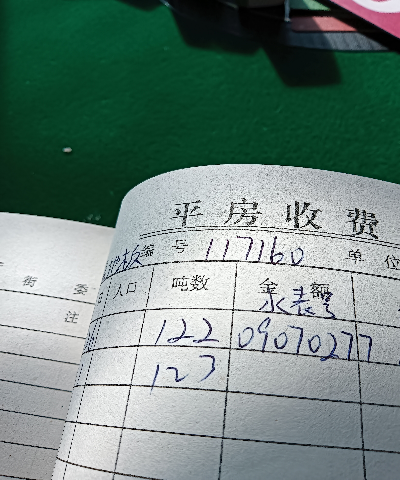 平房收费
编号 117160 单位
人口 吨数 金额
水表号
122 09070277
123
街委
注